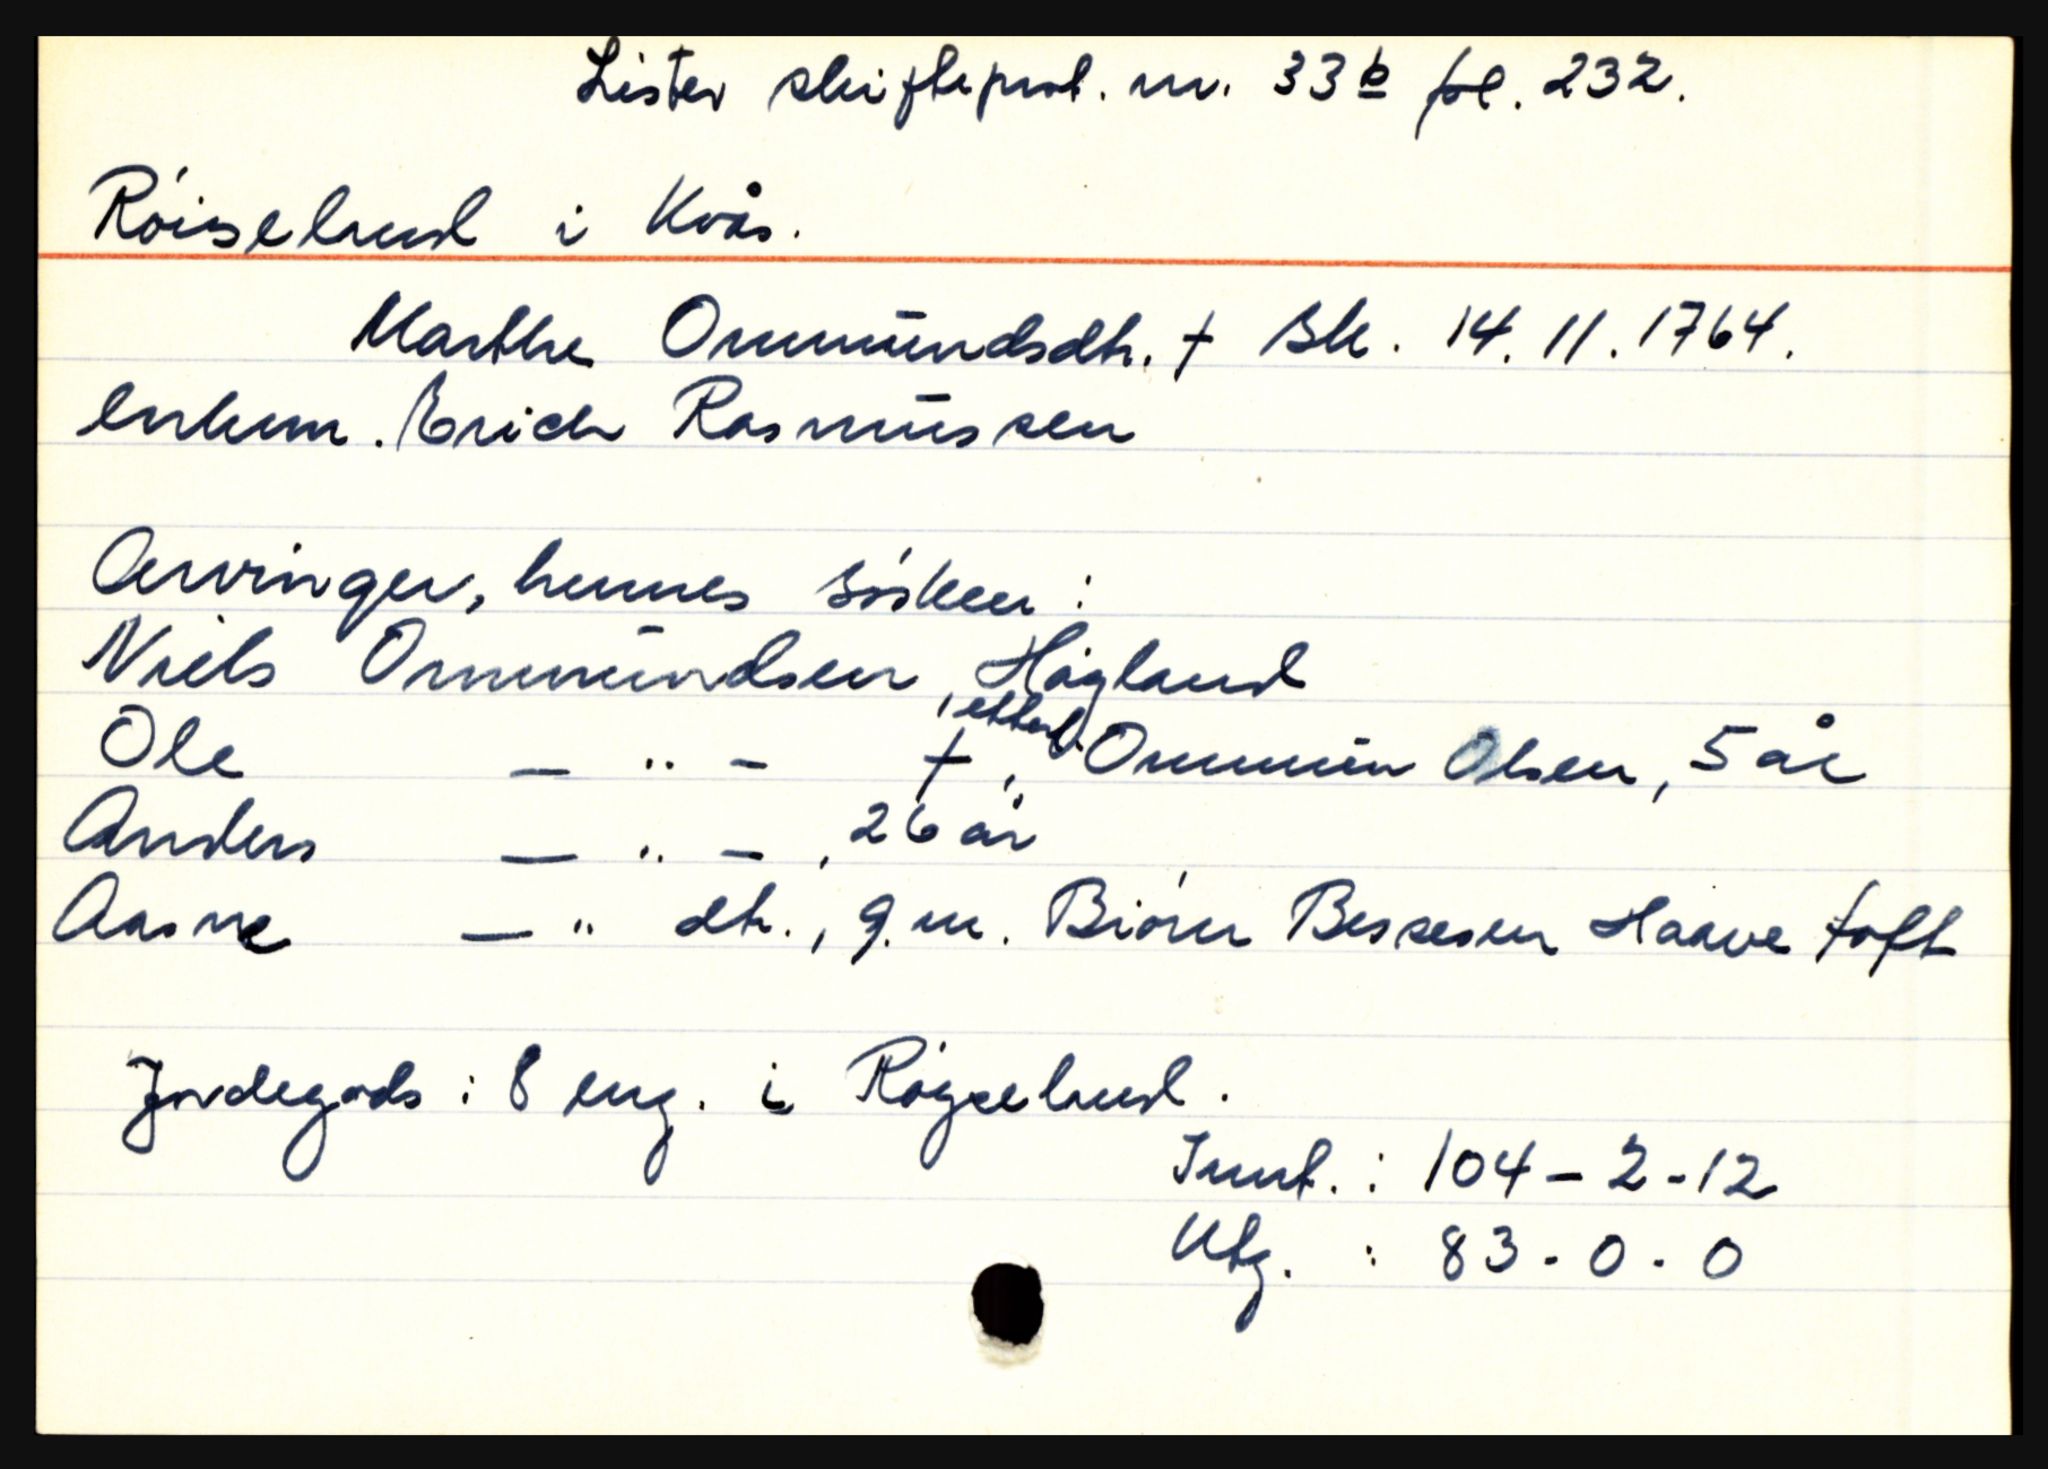 Lister skifteprot. nr. 33b fol. 232.
Röiseland i Kvås.
Marthe Ommundsdtr. † Sk. 14.11.1764.
Enkem. Erich Rasmussen
Arvinger, hennes sösken:
Niels Ommundsen, Högland
Ole — " — †, etterl. Ommun Olsen, 5 år
Anders — " —, 26 år
Aasne — " dtr., g.m. Biörn Bessesen Haavetoft
Jordegods: 8 eng. i Röyseland.
Innt.: 104 - 2 - 12
Utg. : 83 - 0 - 0